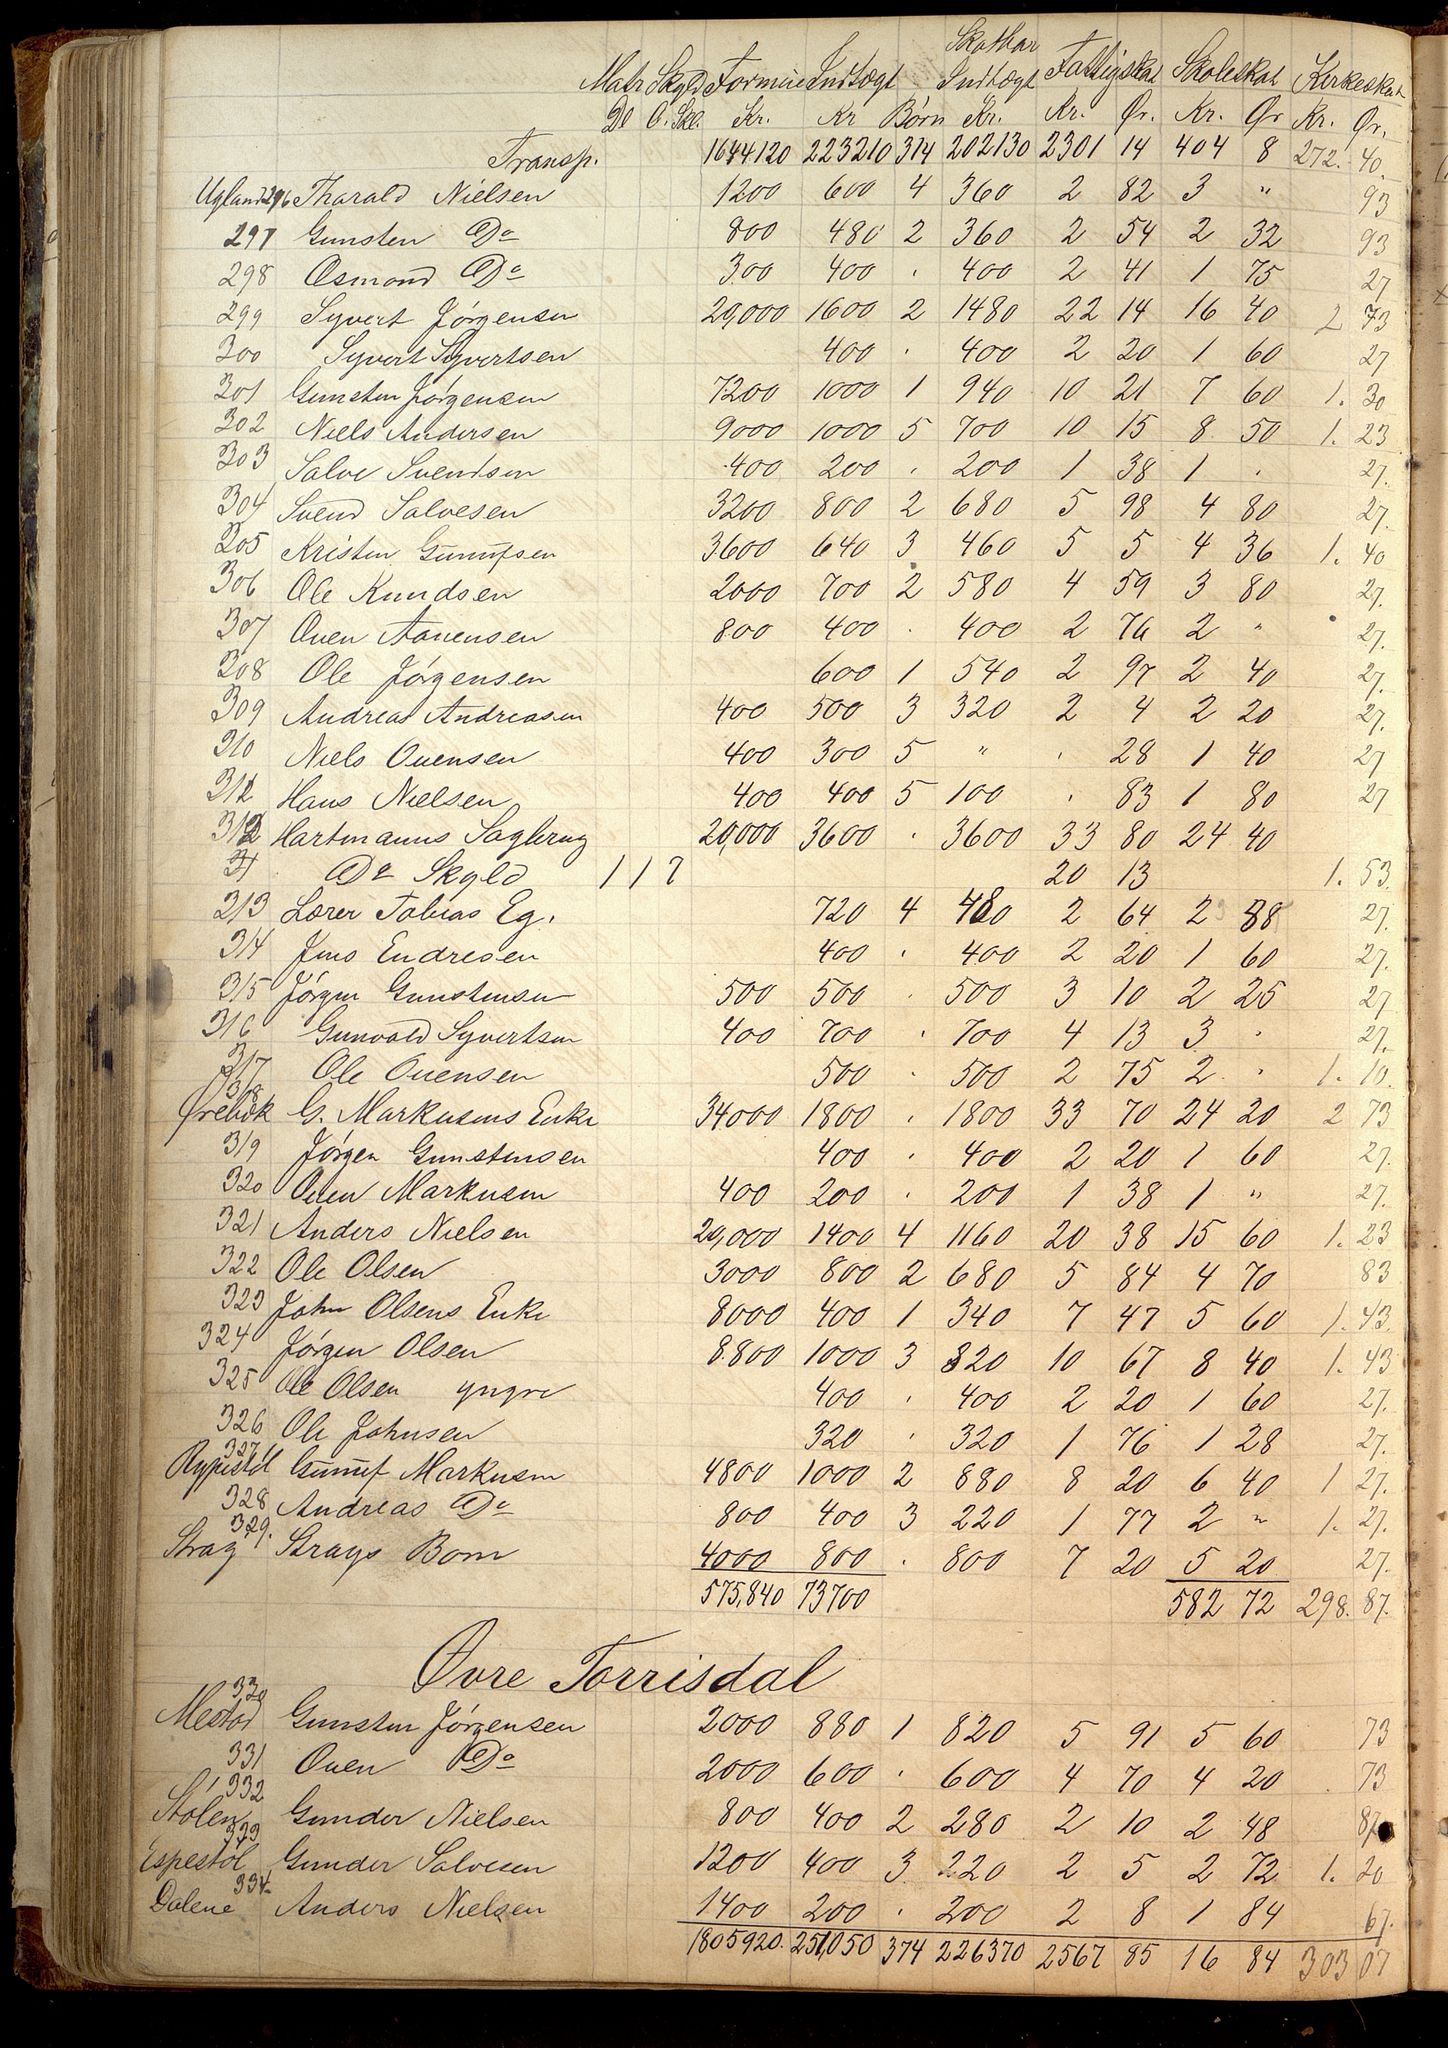 Matr. Skyld Formue Indtægt Skatbar Indtægt Fattigskat Skoleskat Kirkeskat
Dl O. Skl. Kr. Kr Børn Kr. Kr. Ør. Kr. Ør Kr. Ør.
Transp. 1644120 223210 314 202130 2301 14 404 8 272. 40.
Ugland 296 Tharald Nielsen 1200 600 4 360 2 82 3 " 93
297 Gunsten Do 800 480 2 360 2 54 2 32 93
298 Osmond Do 300 400 . 400 2 41 1 75 27
299 Syvert Jørgensen 20,000 1600 2 1480 22 14 16 40 2 73
300 Syvert Syvertsen 400 . 400 2 20 1 60 27
301 Gunsten Jørgensen 7200 1000 1 940 10 21 7 60 1. 30
302 Niels Andersen 9000 1000 5 700 10 15 8 50 1. 23
303 Salve Svendsen 400 200 . 200 1 38 1 . 27.
304 Svend Salvesen 3200 800 2 680 5 98 4 80 27.
305 Kristen Gunufsen 3600 640 3 460 5 5 4 36 1. 40
306 Ole Knudsen 2000 700 2 580 4 59 3 80 27.
307 Ouen Aanensen 800 400 . 400 2 76 2 " 27.
308 Ole Jørgensen 600 1 540 2 97 2 40 27.
309 Andreas Andreasen 400 500 3 320 2 4 2 20 27.
310 Niels Ouensen 400 300 5 " . 28 1 40 27
311 Hans Nielsen 400 400 5 100 . 83 1 80 27
312 Hartmanns Sagbrug 20,000 3600 . 3600 33 80 24 40
Do Skyld 1 1 7 20 13 1. 53.
313 Lærer Tobias Eg. 720 4 480 2 64 2 88 27.
314 Jens Endresen 400 . 400 2 20 1 60 27.
315 Jørgen Gunstensen 500 500 . 500 3 10 2 25 27
316 Gunvald Syvertsen 400 700 . 700 4 13 3 . 27.
317 Ole Ouensen 500 . 500 2 75 2 . 1. 10.
318
Ørebæk G. Markusens Enke 34000 1800 . 1800 33 70 24 20 2 73
319 Jørgen Gunstensen 400 . 400 2 20 1 60 27.
320 Ouen Markusen 400 200 . 200 1 38 1 " 27.
321 Anders Nielsen 20,000 1400 4 1160 20 38 15 60 1. 23
322 Ole Olsen 3000 800 2 680 5 84 4 70 83
323 John Olsens Enke 8000 400 1 340 7 47 5 60 1. 43.
324 Jørgen Olsen 8.800 1000 3 820 10 67 8 40 1. 43
325 Ole Olsen yngre 400 . 400 2 20 1 60 27.
326 Ole Johnsen 320 . 320 1 76 1 28 27.
327
Rypestöl Gunuf Markusen 4800 1000 2 880 8 20 6 40 1 27.
328 Andreas Do 800 400 3 220 1 77 2 " 1. 27.
329.
Stray Strays Bom 4000 800 . 800 7 20 5 20 27.
575,840 73700 582 72 298. 87.
Øvre Torrisdal
330
Mestad Gunsten Jørgensen 2000 880 1 820 5 91 5 60 73
331 Ouen Do 2000 600 . 600 4 70 4 20 . 73
332
Stölen Gunder Nielsen 800 400 2 280 2 10 2 48 87
333
Espestöl Gunder Salvesen 1200 400 3 220 2 5 2 72 1. 20
334
Dalene Anders Nielsen 1400 200 . 200 2 8 1 84 67.
1805920. 251,050 374 226370 2567 85 16 84 303 07